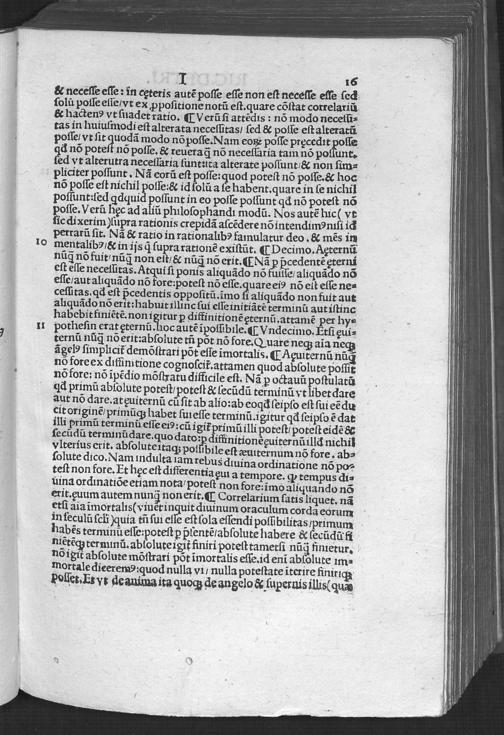 I 16
& necesse esse: in cęteris autē posse esse non est necesse esse sed
solū posse esse/vt ex ꝓpositione notū est. quare cōstat correlariū
& hactenꝰ vt suadet ratio. ¶ Verū si attēdis: nō modo necessi-
tas in huiusmodi est alterata necessitas/ sed & posse est alteratū
posse/vt sit quodā modo nō posse. Nam eorū posse pręcedit posse
qđ nō potest nō posse. & reuera q̄ nō necessaria tam nō possunt.
sed vt alterutra necessaria sunt: ita alterate possunt & non sim-
pliciter possunt. Nā eorū est posse: quod potest nō posse. & hoc
nō posse est nichil posse: & id solū a se habent. quare in se nichil
possunt: sed qđquid possunt in eo posse possunt qđ nō potest nō
posse. Verū hęc ad aliū philosophandi modū. Nos autē hic (vt
sic dixerim) supra rationis crepidā ascēdere nō intendimꝰ nisi id
perrarū sit. Nā & ratio in rationalibꝰ famulatur deo. & mēs in
10 mentalibꝰ/& in ijs q̄ supra rationē existūt. ¶ Decimo. Aęternū
nūq̄ nō fuit/ nūq̄ non est/ & nūq̄ nō erit. ¶ Nā p p̄cedentē ęterni
est esse necessitas. Atqui si ponis aliquādo nō fuisse/aliquādo nō
esse/aut aliquādo nō fore: potest nō esse. quare eiꝰ nō est esse ne-
cessitas. qđ est p̄cedentis oppositū. imo si aliquādo non fuit aut
aliquādo nō erit: habuit illinc sui esse initiātē terminū aut istinc
habebit finiētē. non igitur p diffinitionē ęternū. attamē per hy-
11 pothesin erat ęternū. hoc autē ipossibile. ¶ Vndecimo. Etsi ęui-
ternū nūq̄ nō erit: absolute tn̄ pōt nō fore. Quare neqꝫ aīa neqꝫ
āgelꝰ simplicit̄ demōstrari pōt esse imortalis. ¶ Aęuiternū nūq̄
nō fore ex diffinitione cognoscit̄. attamen quod absolute possit
nō fore: nō ipēdio mōstratu difficile est. Nā p octauū postulatū
qđ primū absolute potest/ potest & secūdū terminū vt libet dare
aut nō dare. at ęuiternū cū sit ab alio: ab eo qđ seipso est sui eē du
cit originē/ primūqꝫ habet sui esse terminū. igitur qđ seipso ē dat
illi primū terminū esse eiꝰ: cū igit̄ primū illi potest/ potest eidē &
secūdū terminū dare. quo dato: p diffinitionē ęuiternū illđ nichil
vlterius erit. absolute itaqꝫ possibile est æuiternum nō fore. ab-
solute dico. Nam indulta iam rebus diuina ordinatione nō po-
test non fore. Et hęc est differentia ęui a tempore. qꝫ tempus di-
uina ordinatiōe etiam nota/ potest non fore: imo aliquando nō
erit. ęuum autem nunq̄ non erit. ¶ Correlarium satis liquet. nā
etsi aīa imortalis (viuet inquit diuinum oraculum corda eorum
in seculū scl̄i) quia tn̄ sui esse est sola essendi possibilitas/primum
habēs terminū esse: potest p p̄sentē/absolute habere & secūdū fi
niētēqꝫ terminū. absolute igit̄ finiri potest tametsi nūq̄ finietur.
nō igit̄ absolute mōstrari pōt īmortalis esse. id eni absolute im-
mortale diceremꝰ: quod nulla vi/ nulla potestate iterire finiriqꝫ
posset. Et vt de anima ita quoqꝫ de angelo & supernis illis (quæ